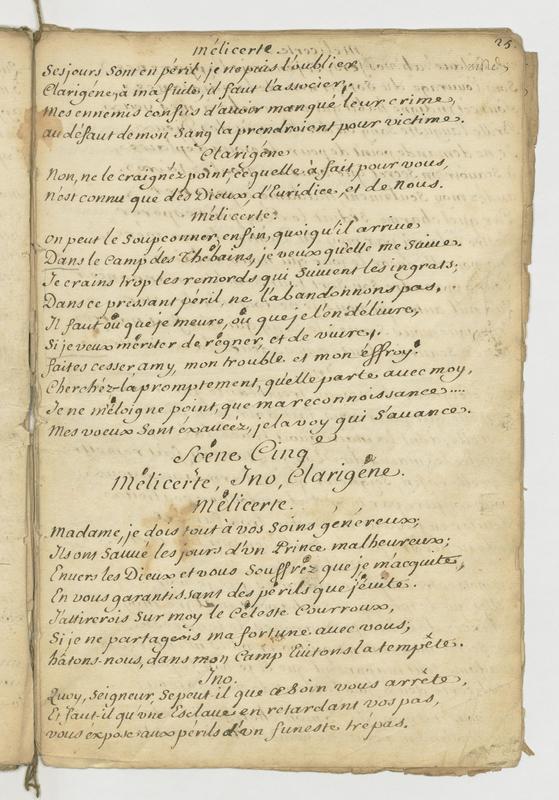 25.
Mélicerte.
Ses jours sont en péril, je ne puis l'oublier
Clarigéne, à ma fuite, il faut l'associer,
Mes ennemis confus d'avoir manqué leur crime,
au défaut de mon sang la prendroient pour victime.
Clarigéne
Non, ne le craignéz point, ce quelle à fait pour vous,
n'est connu que dés Dieux, d'Euridice, et de Nous.
Mélicerte.
on peut le soupconner, enfin, quoi qu'il arrive
Dans le Camp des Thébains, je veux qu'elle me suive.
Je crains trop les remords qui suivent les ingrats;
Dans ce pressant péril, ne l'abandonnons pas,
Il faut où que je meure, où que je l'en délivre,
Si je veux mériter de régner, et de vivre,.
faites cesser amy, mon trouble et mon éffroy.
Cherchéz-la promptement, qu'elle parte avec moy,
Je ne m'éloigne point, que ma reconnoissance ....
Mes voeux sont éxaucéz, je la voy qui s'avance.
Scéne Cinq
Mélicerte, Ino, Clarigéne.
Mélicerte.
Madame, je dois tout à vos soins généreux;
Ils ont sauvé les jours d'vn Prince malheureux;
Envers les Dieux et vous souffréz que je m'acquite,
En vous garantissant des périls que j'évite.
J'attirerois sur moy le Céleste Courroux,
Si je ne partageois ma fortune avec vous;
hâtons-nous, dans mon Camp évitons la tempête.
Ino.
Quoy, Seigneur, se peut-il que ce soin vous arrête,
Et faut-il qu'vne Esclave en retardant vos pas,
vous expose aux périls d'vn funeste trépas.